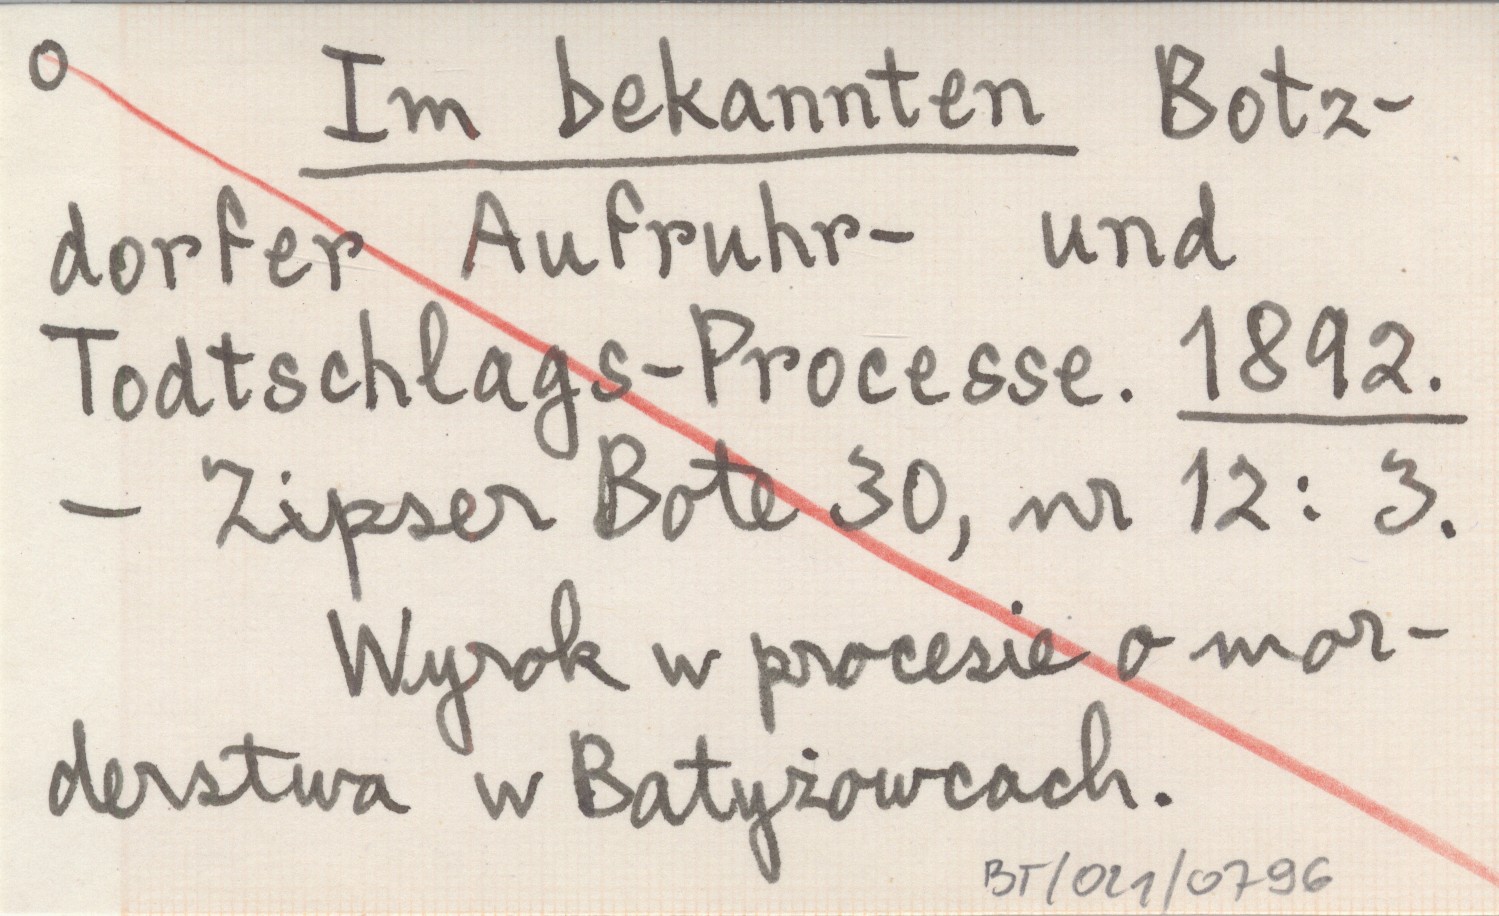 o Im bekannten Botz-
dorfer Aufruhr- und
Todtschlags-Processe. 1892.
– Zipser Bote 30, nr 12: 3.
Wyrok w procesie o mor-
derstwa w Batyżowcach.
BT/021/0796